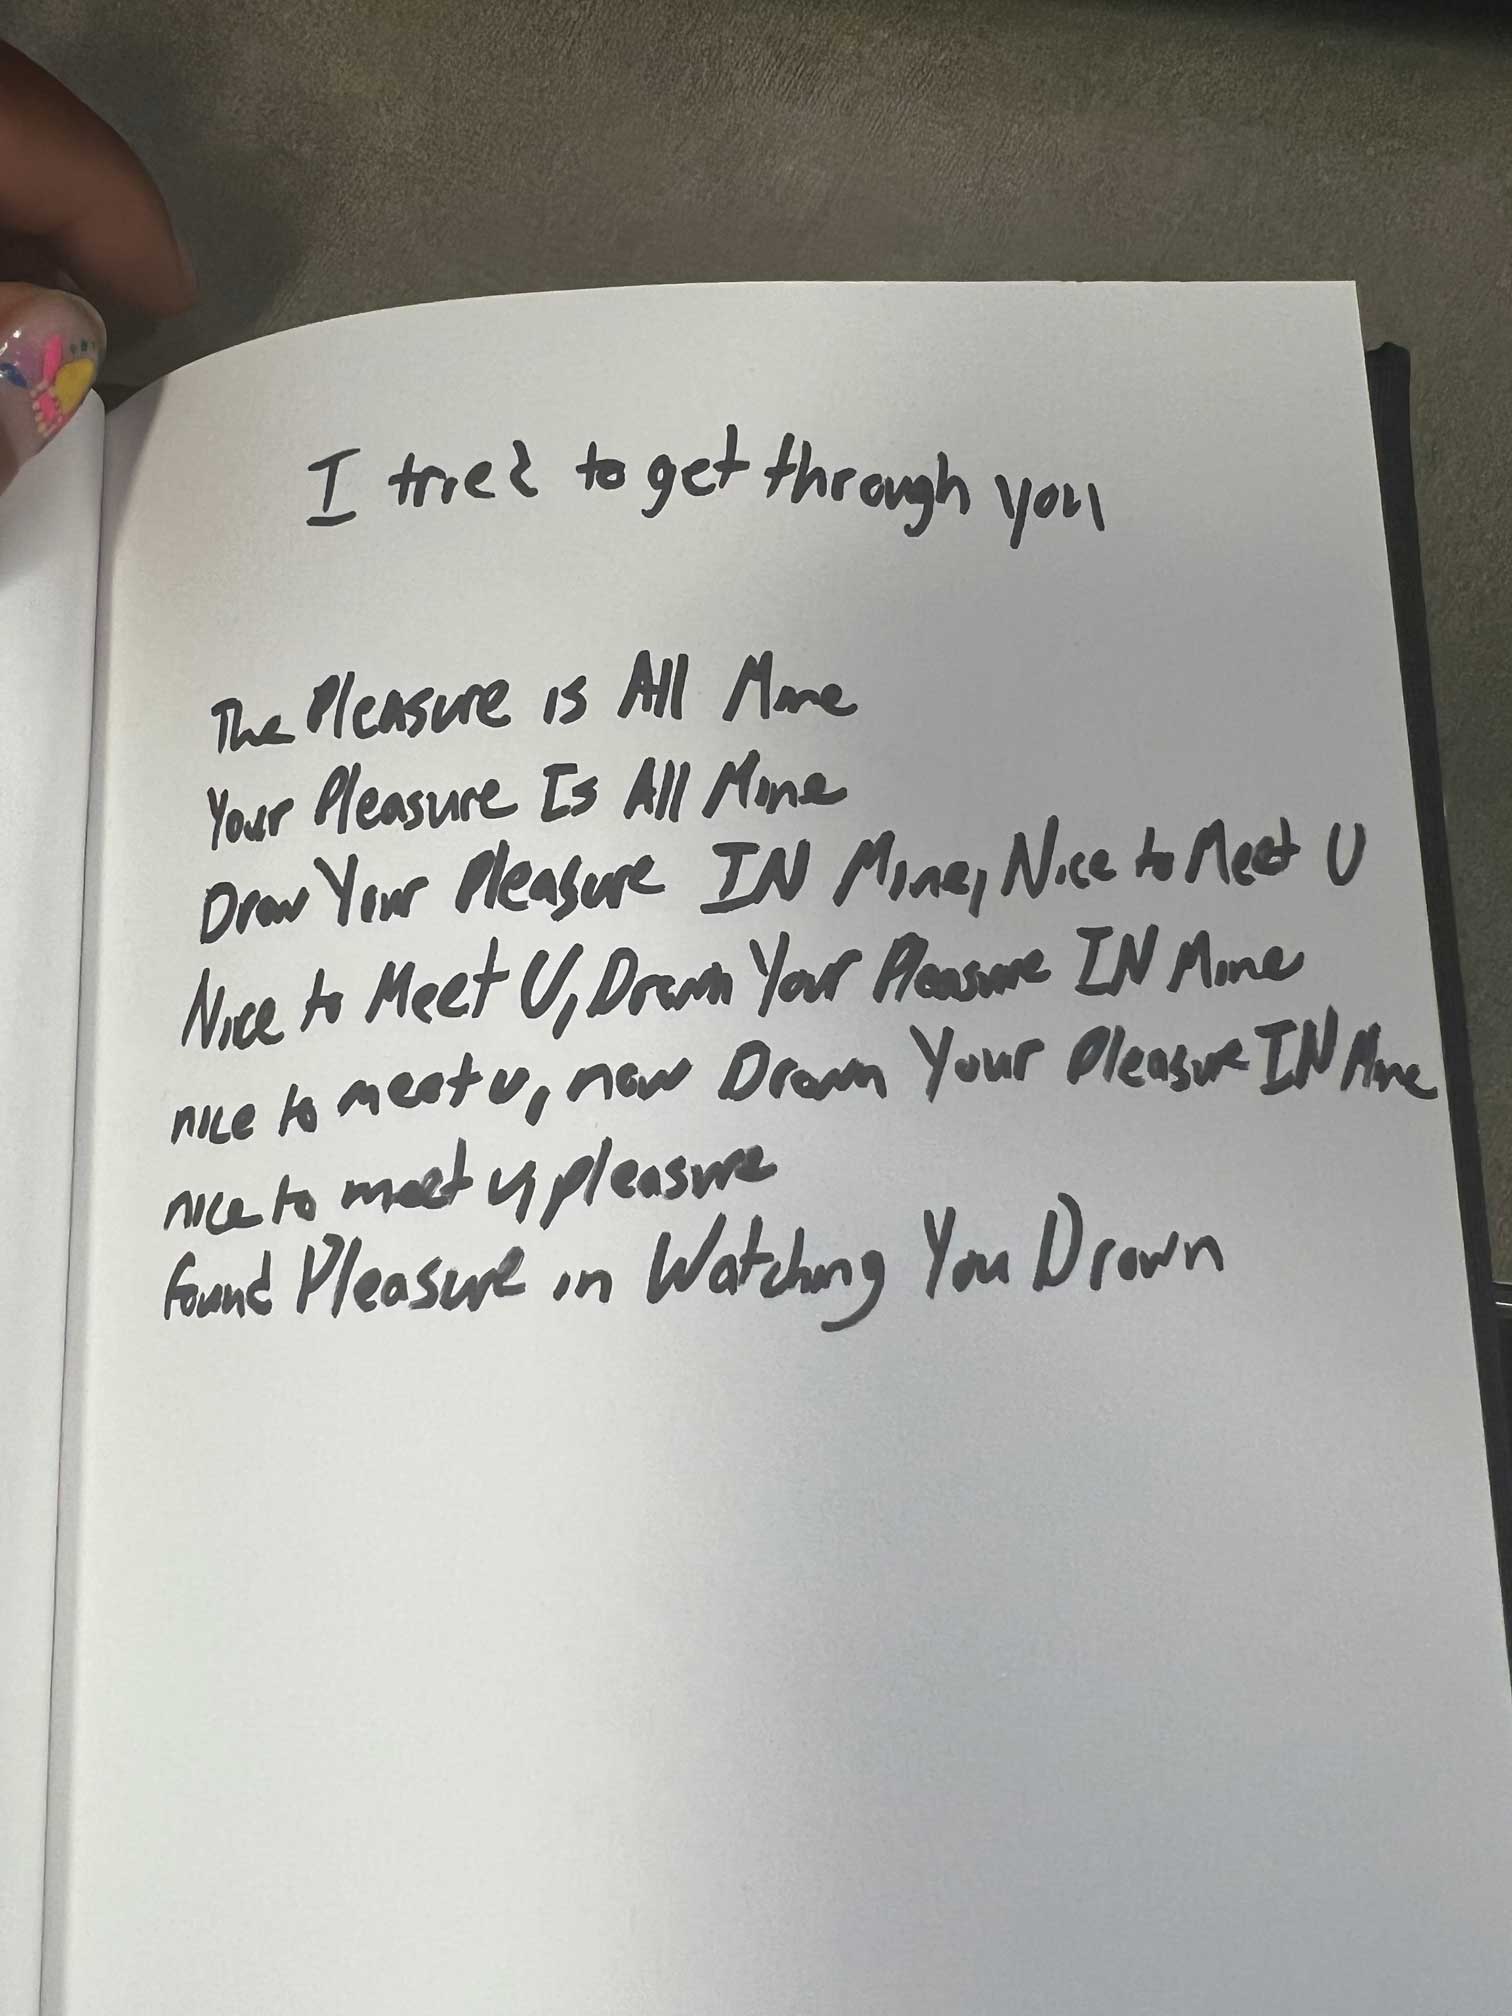 I tried to get through you
The Pleasure is All Mine
Your Pleasure Is All Mine
Drow Your Pleasure IN Mine, Nice to Meet U
Nice to Meet U, Drown Your Pleasure IN Mine
nice to meet u, now Drown Your Pleasure IN Mine
nice to meet u, pleasure
found Pleasure in Watching You Drown